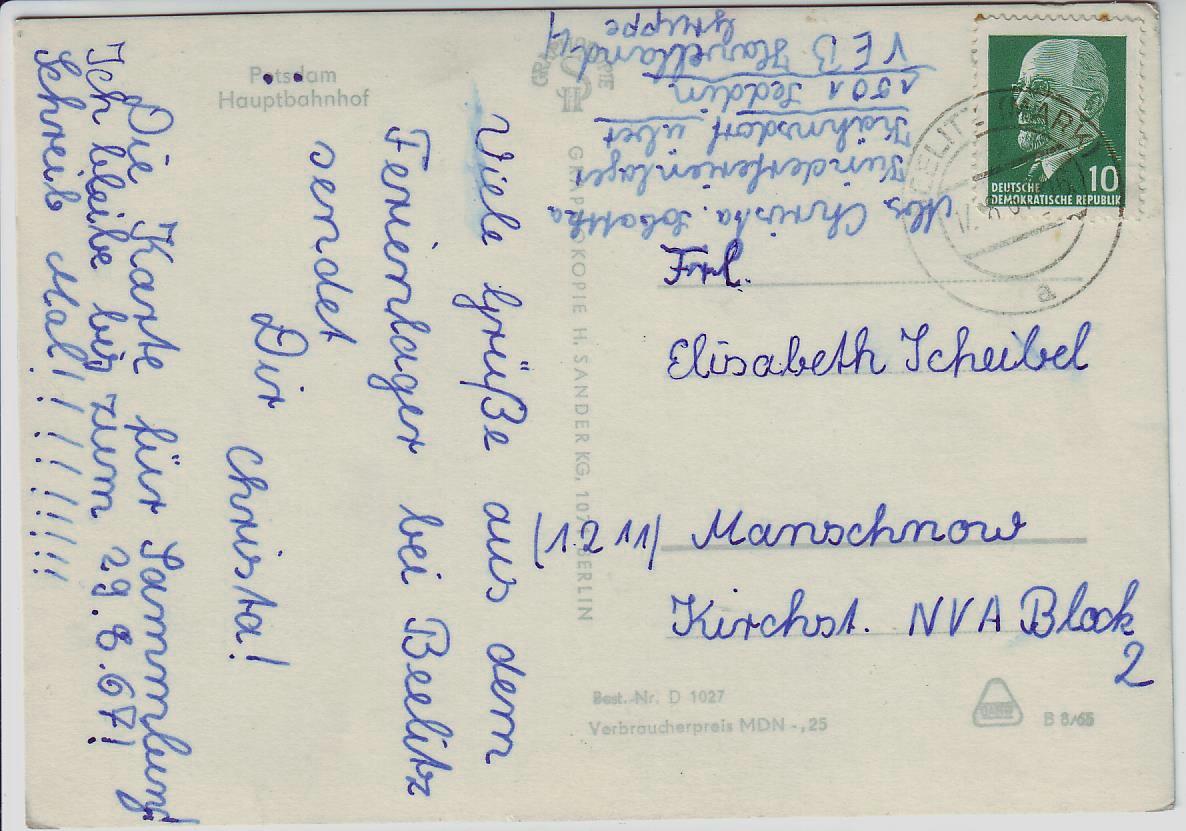 Potsdam
Hauptbahnhof
Viele Grüße aus dem
Ferienlager bei Beelitz
sendet
Dir Christa!
Die Karte für Sammlung!
Ich bleibe bis zum 29.8.67!
Schreib Mal!!!!!!!!!!
Abs. Christa
Kinderferienlager
Kähnsdorf über
1501 Seddin
VEB Havelland
Gruppe 4
GRAPHOKOPIE H. SANDER KG, BERLIN
DEUTSCHE
DEMOKRATISCHE REPUBLIK
10
BEELITZ (MARK)
a
Frl.
Elisabeth Scheibel
(1211) Manschnow
Kirchst. NVA Block
2
Best.-Nr. D 1027
Verbraucherpreis MDN -,25
B 8/65